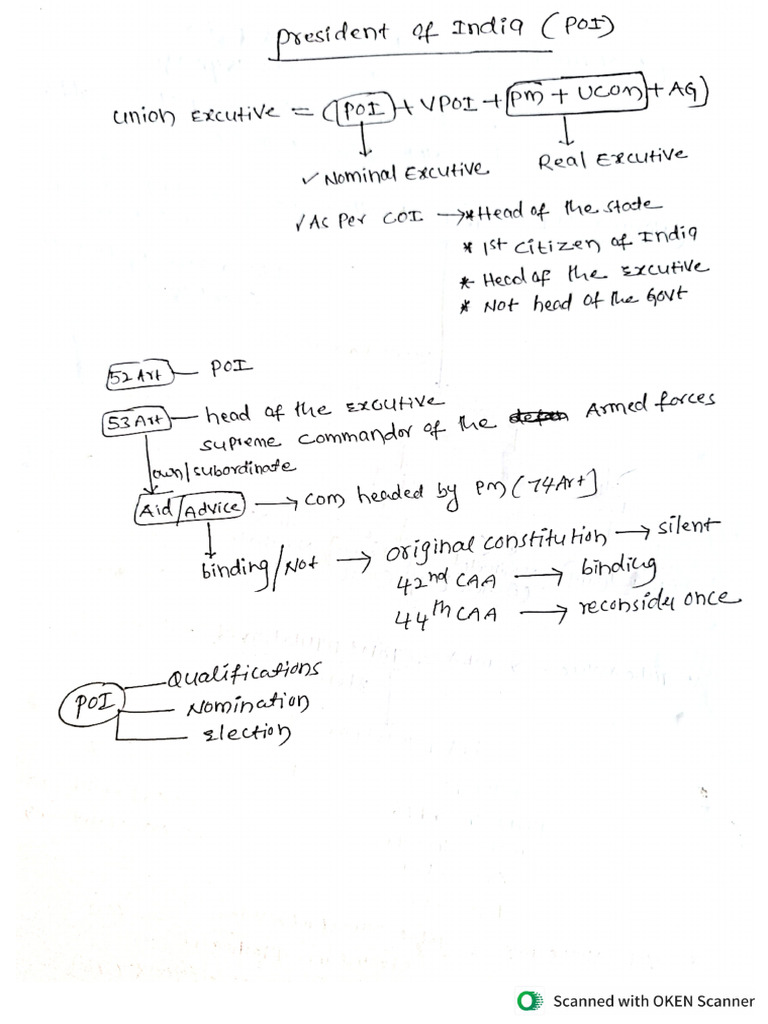 President of India (POI)
Union Excutive = (POI + VPOI + PM + UCOM + AG)
✓ Nominal Excutive
Real Excutive
✓ As Per COI → * Head of the state
* 1st Citizen of India
* Head of the Excutive
* Not head of the Govt
52 Art — POI
53 Art — head of the excutive
supreme commandor of the Armed forces
own/subordinate
Aid/Advice → COM headed by PM (74 Art]
binding/Not → original constitution → silent
42nd CAA → binding
44th CAA → reconsider once
POI — Qualifications
— Nomination
— Election
Scanned with OKEN Scanner